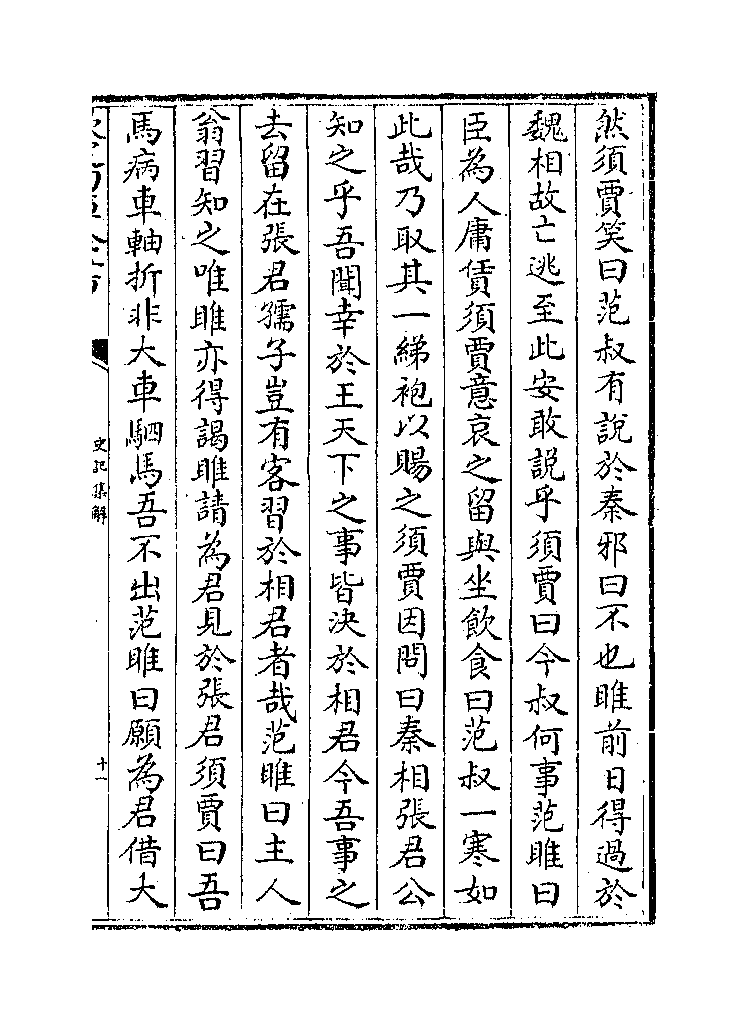 然須賈笑曰范叔有說於秦邪曰不也雎前日得過於
魏相故亡逃至此安敢說乎須賈曰今叔何事范雎曰
臣為人庸賃須賈意哀之留與坐飲食曰范叔一寒如
此哉乃取其一綈袍以賜之須賈因問曰秦相張君公
知之乎吾聞幸於王天下之事皆決於相君今吾事之
去留在張君孺子豈有客習於相君者哉范雎曰主人
翁習知之唯雎亦得謁雎請為君見於張君須賈曰吾
馬病車軸折非大車駟馬吾不出范雎曰願為君借大
史記集解
十一